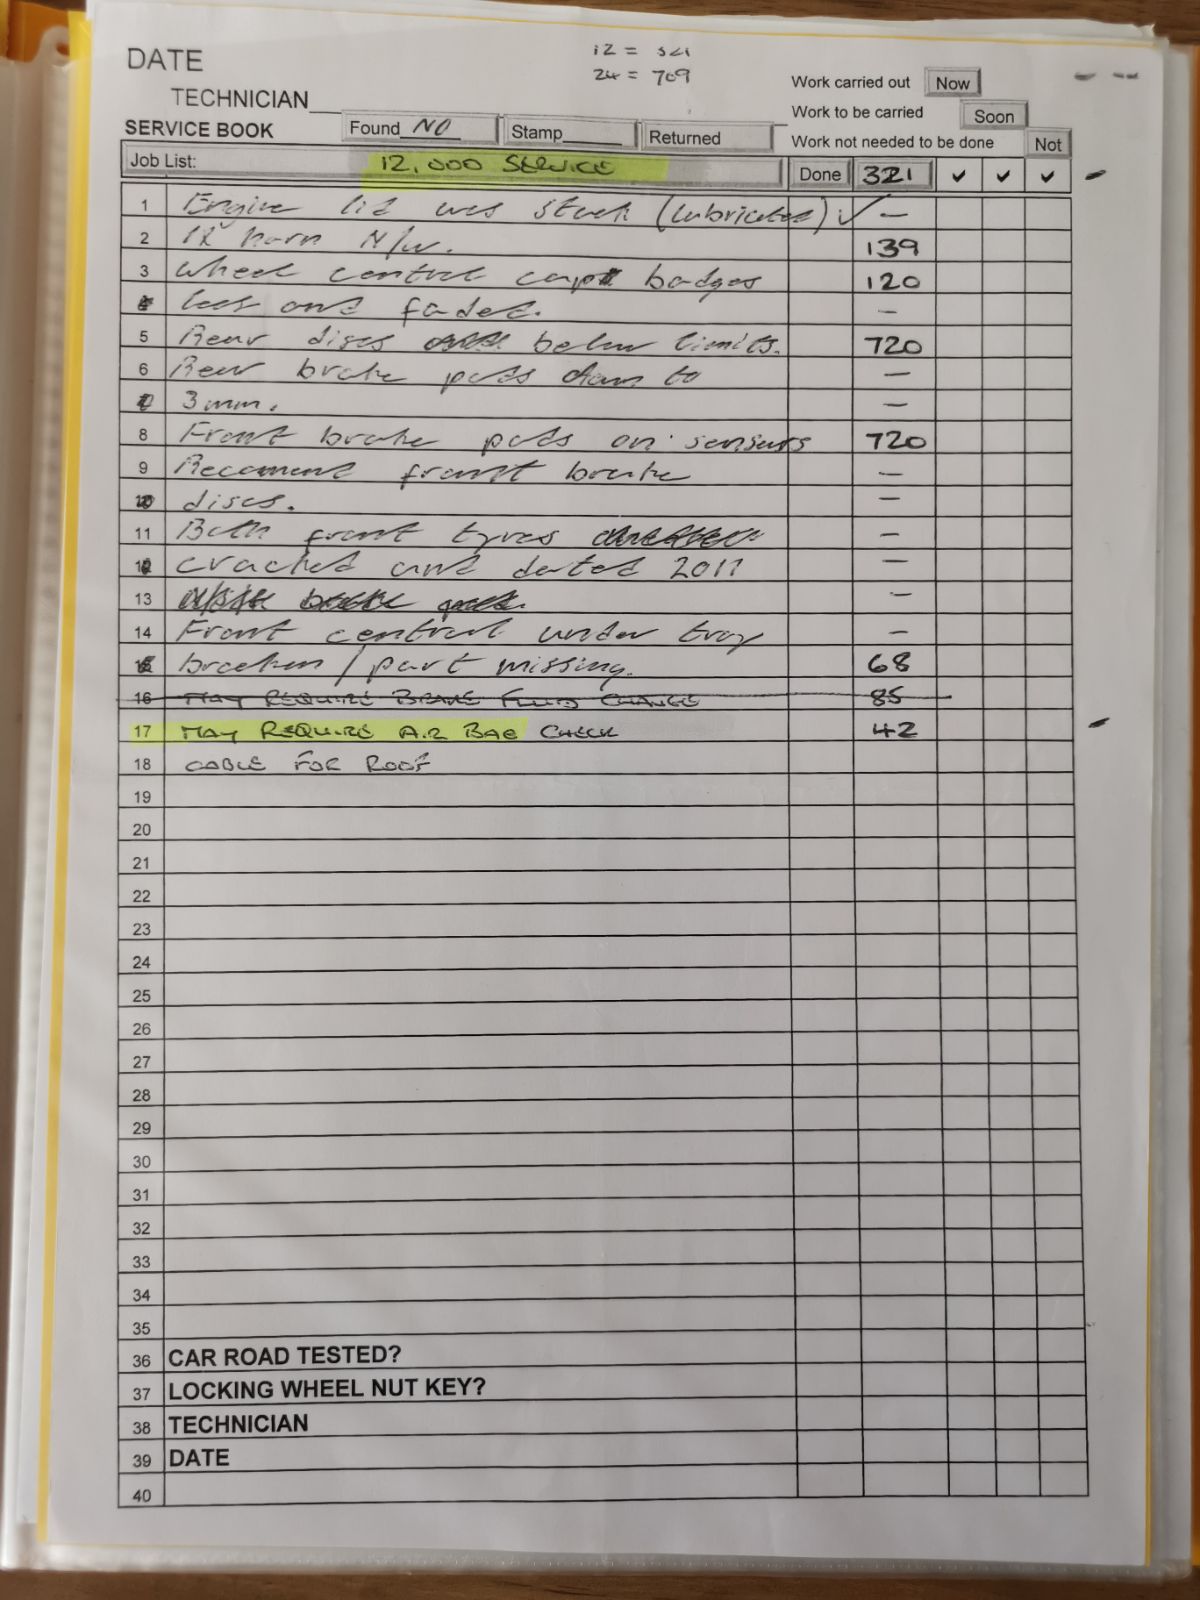 DATE
12 = 321
24 = 709
Work carried out Now
TECHNICIAN
Work to be carried Soon
SERVICE BOOK Found NO Stamp Returned
Work not needed to be done Not
Job List: 12,000 SERVICE Done 321 ✓ ✓ ✓
1 Engine lid was stuck (lubricated) ✓ —
2 1x horn N/W. 139
3 Wheel central caps badges 120
4 lose and faded. —
5 Rear discs below limits. 720
6 Rear brake pads down to —
7 3mm. —
8 Front brake pads on sensors 720
9 Recomend front brake —
10 discs. —
11 Both front tyres —
12 cracked and dated 2011 —
13 —
14 Front central under tray —
15 broken / part missing. 68
16 MAY REQUIRE BRAKE FLUID CHANGE 85
17 MAY REQUIRE AIR BAG CHECK 42
18 CABLE FOR ROOF
19
20
21
22
23
24
25
26
27
28
29
30
31
32
33
34
35
36 CAR ROAD TESTED?
37 LOCKING WHEEL NUT KEY?
38 TECHNICIAN
39 DATE
40